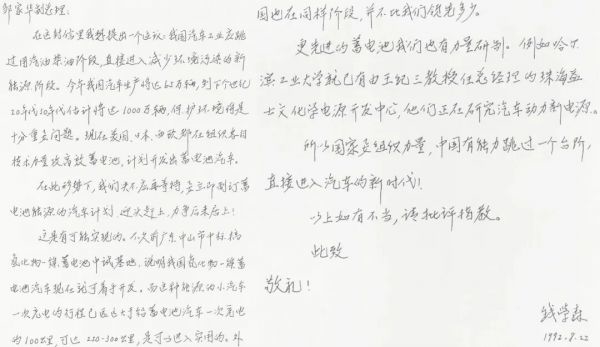 邹家华副总理：
在这封信里我想提出一个建议：我国汽车工业应跳
过用汽油柴油阶段，直接进入减少环境污染的新
能源阶段。今年我国汽车生产将达
万辆，到下个世纪
20年代30年代估计将达1000万辆，保护环境将是
十分重要问题。现在美国、日本、西欧都在组织各自
技术力量攻高效蓄电池，计划开发出蓄电池汽车。
在此形势下，我们决不应再等待，要立即制订蓄
电池能源的汽车计划，迎头赶上，力争后来居上！
这是有可能实现的。不久前广东中山市中标搞
氢化物-镍蓄电池中试基地，说明我国氢化物-镍蓄
电池汽车现在就可着手开发。而这种能源的小汽车
一次充电的行程已远远大于铅蓄电池汽车一次充电
的100公里，可达
-300公里，是可以进入实用的。外
国也在同样阶段，并不比我们领先多少。
更先进的蓄电池我们也有力量研制。例如哈尔
滨工业大学就已有由王纪三教授任总经理的珠海益
士文化学电源开发中心，他们正在研究汽车动力新电源。
所以国家要组织力量，中国有能力跳过一个台阶，
直接进入汽车的新时代！
以上如有不当，请批评指教。
此致
敬礼！
钱学森
1992.8.22